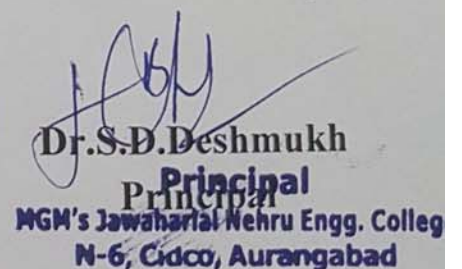 Dr.S.D.Deshmukh
Principal
Principal
MGM's Jawaharlal Nehru Engg. Colleg
N-6, Cidco, Aurangabad